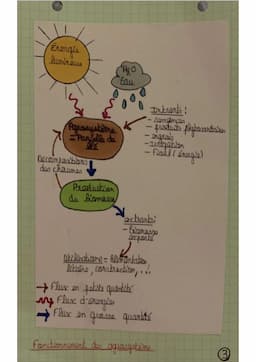 Énergie
lumineuse
H₂O
Eau
Intrants :
- semences
- produits phytosanitaires
- engrais
- irrigation
- Fioul (énergie)
Agrosystème
= Parcelle de
blé
Décomposition
des chaumes
Production
de biomasse
extrants :
- biomasse
exportée
Utilisations = Alimentation
litière, construction, ...
→ Flux en petite quantité
Flux d'énergie
→ Flux en grosse quantité
Fonctionnement des agrosystèmes
3